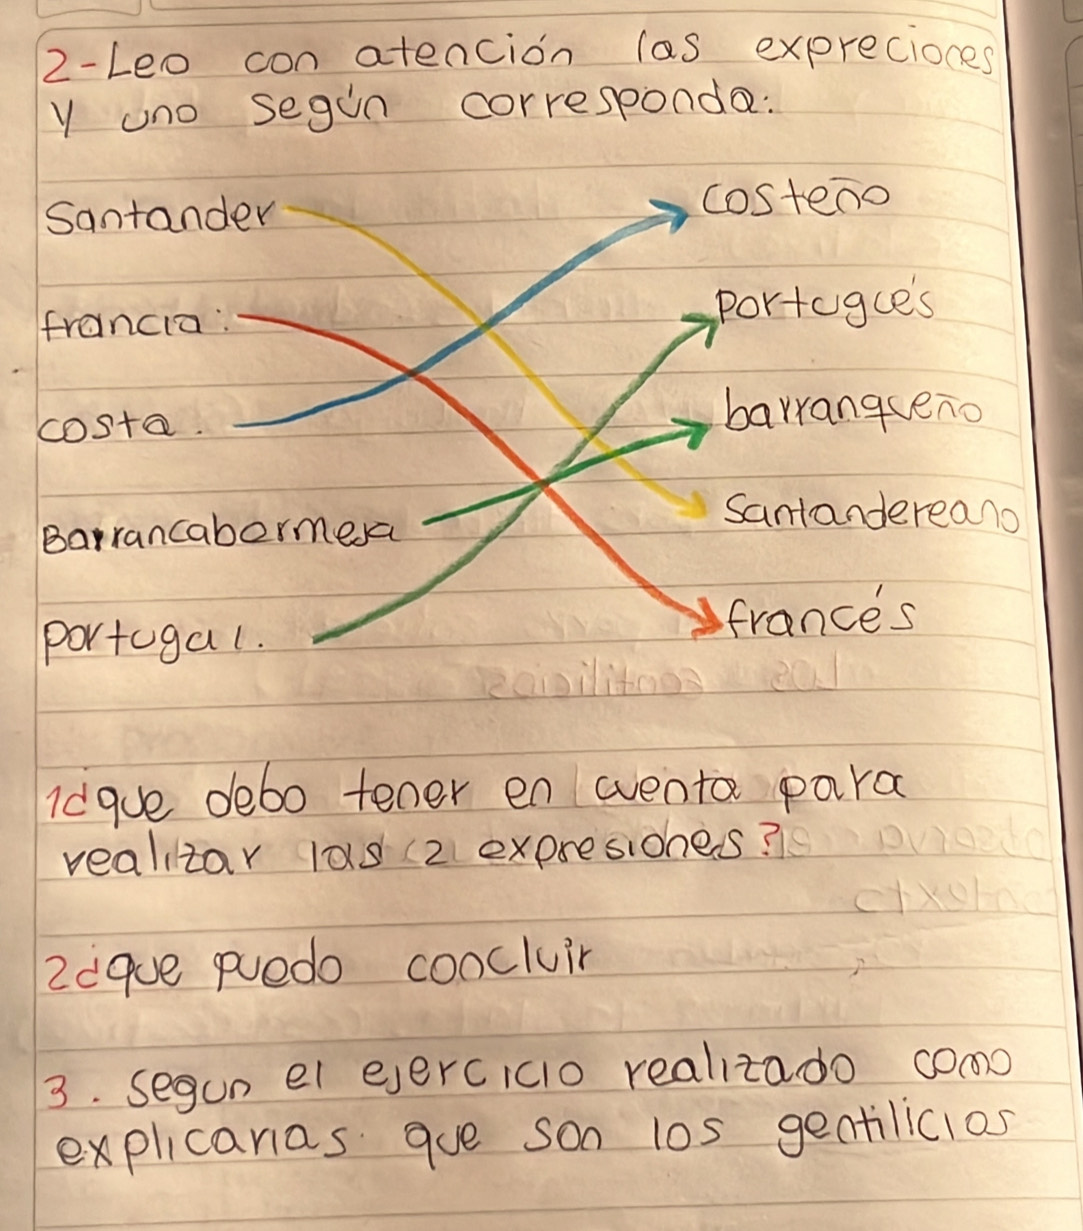 2-Leo con atención las expreciones
y uno según corresponda:
Santander costeño
francia: portugués
costa. barranqueño
Barrancabermeja Santandereano
portugal. francés
1¿que debo tener en cuenta para
realizar las 2 expresiones?
2¿que puedo concluir
3. segun el ejercicio realizado como
explicarias que son los gentilicios